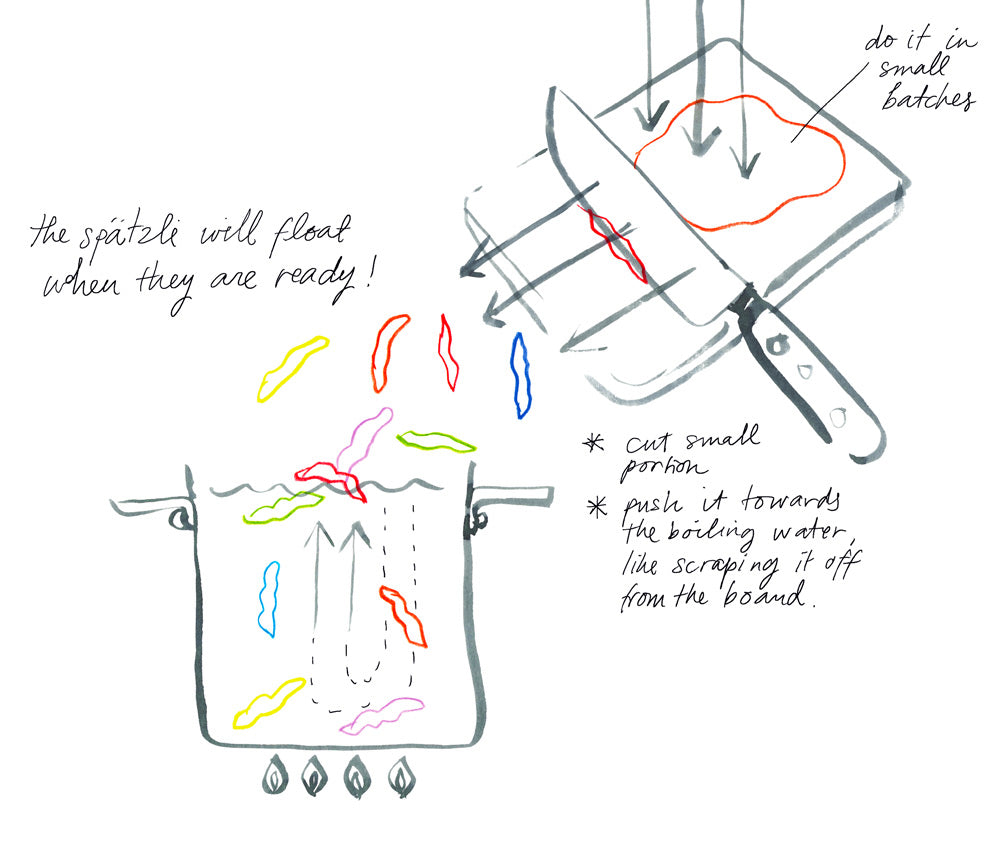 do it in
small
batches
the spätzli will float
when they are ready!
* cut small
portion
* push it towards
the boiling water,
like scraping it off
from the board.